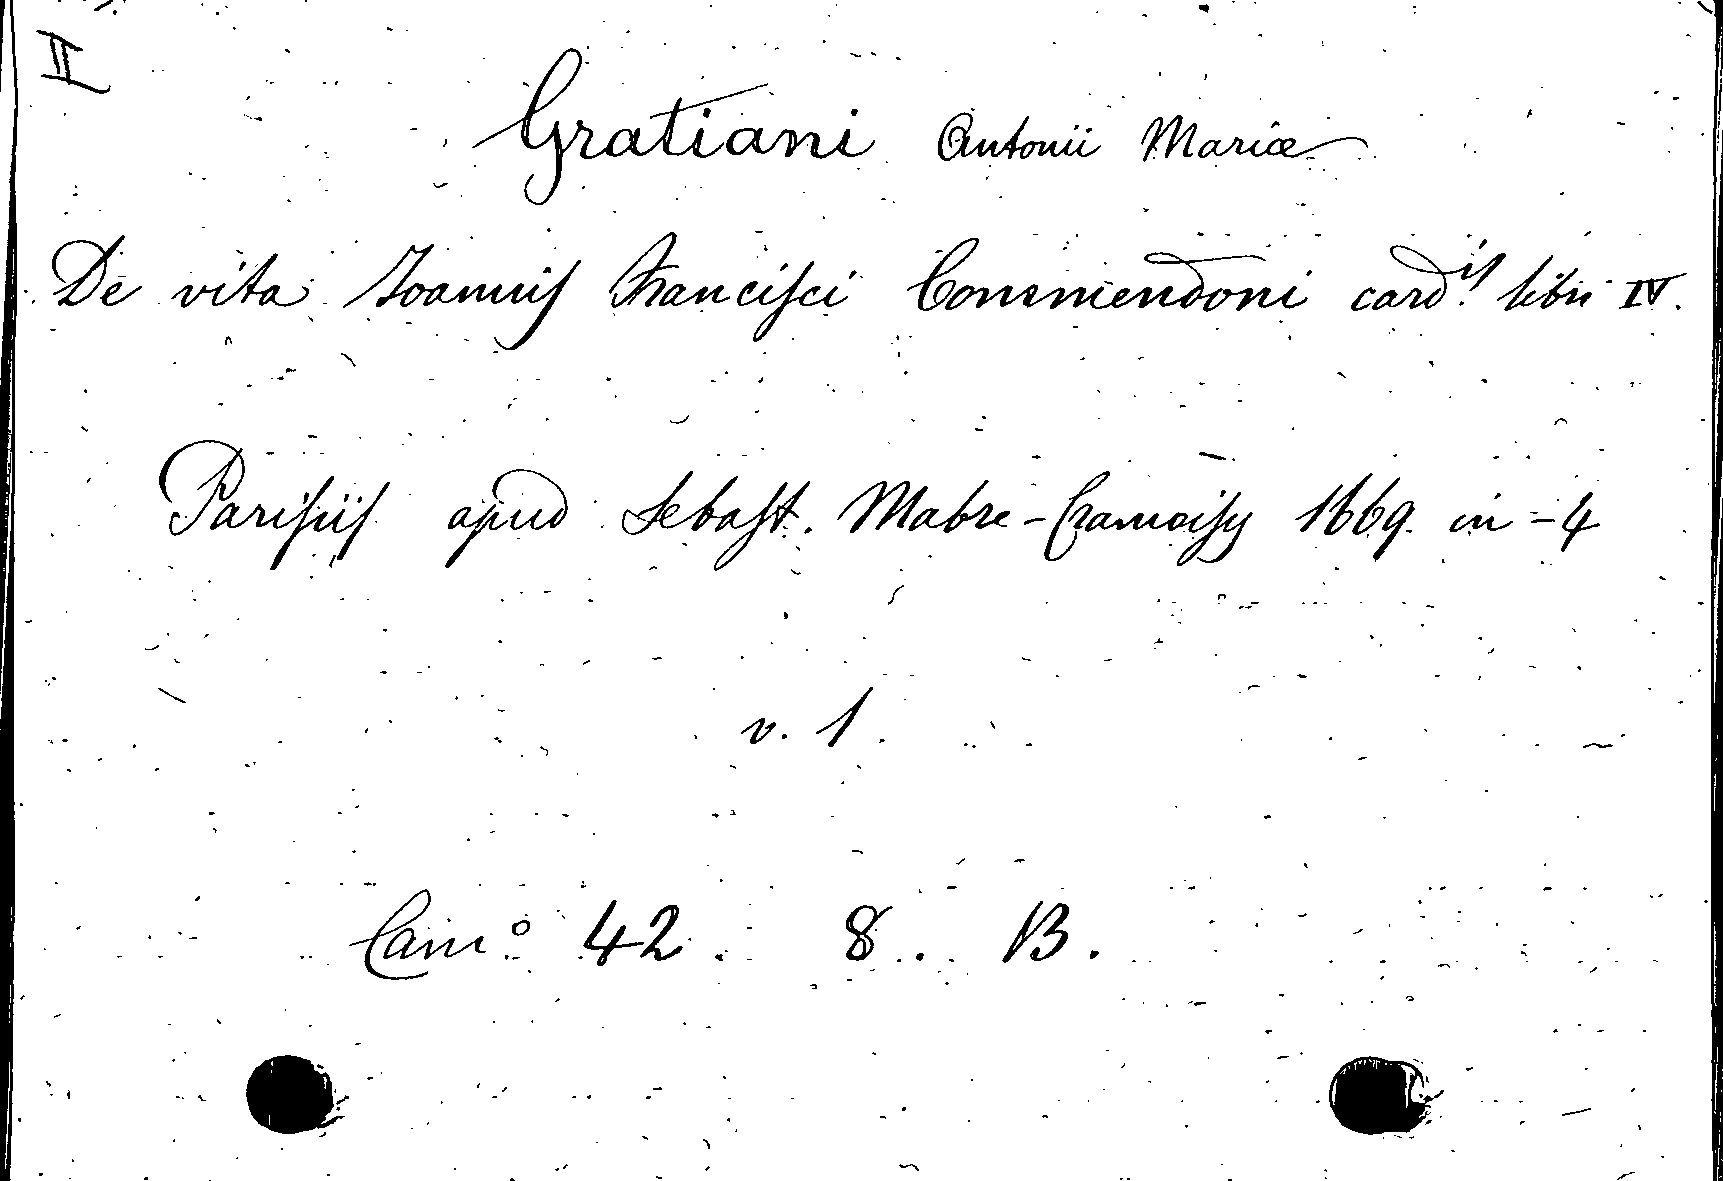 II
Gratiani Antonii Mariæ
De vita Ioannis Francisci Commendoni card.is libri IV.
Parisiis apud Sebast. Mabre-Cramoisy 1669 in-4
v. 1
Cam° 42. 8. B.